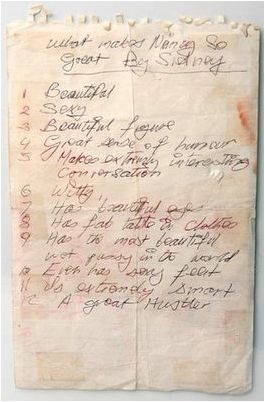 what makes Nancy So
Great By Sidney
1 Beautiful
2 Sexy
3 Beautiful figure
4 Great sense of humour
5 Makes extremely interesting
Conversation
6 Witty
7 Has beautiful eyes
8 Has fab taste in clothes
9 Has the most beautiful
wet pussy in the world
10 Even has sexy feet
11 Is extremely smart
12 A great Hustler